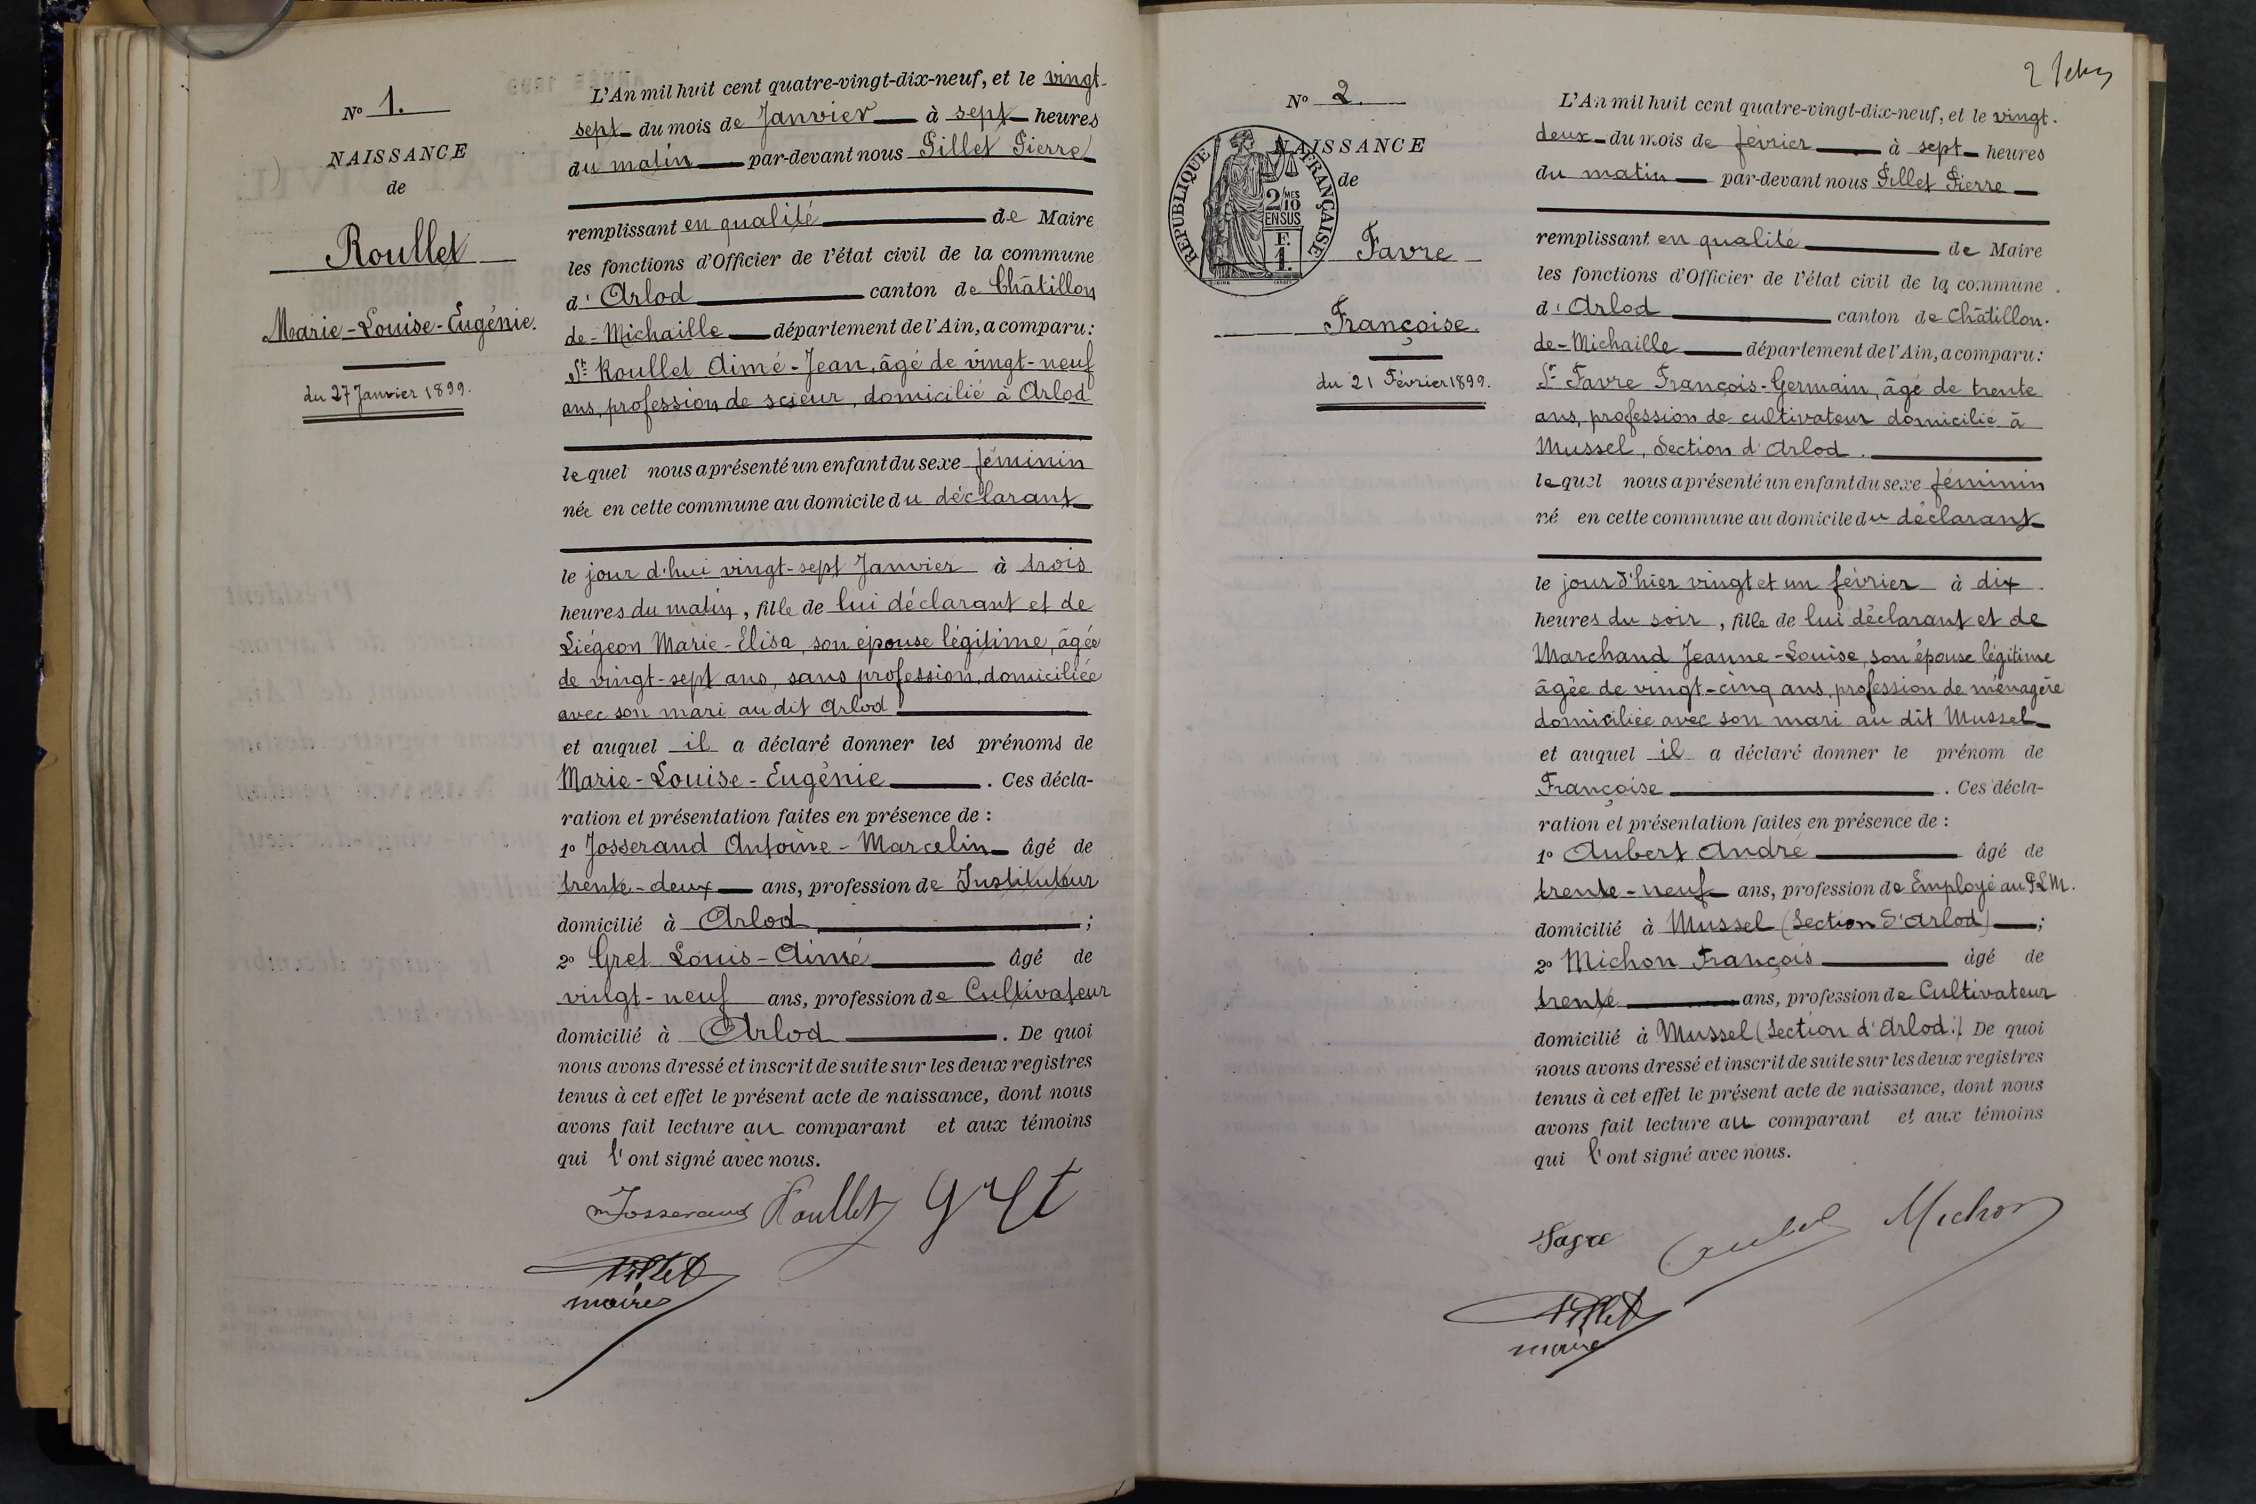 N° 1.
NAISSANCE
de
Roullet
Marie-Louise-Eugénie.
du 27 Janvier 1899.
L'An mil huit cent quatre-vingt-dix-neuf, et le vingt-
sept du mois de Janvier à sept heures
du matin par-devant nous Pillet Pierre
remplissant en qualité de Maire
les fonctions d'Officier de l'état civil de la commune
d'Arlod canton de Châtillon
de-Michaille département de l'Ain, a comparu:
Sr Roullet Aimé-Jean, âgé de vingt-neuf
ans, profession de scieur, domicilié à Arlod
lequel nous a présenté un enfant du sexe féminin
née en cette commune au domicile du déclarant
le jour d'hui vingt-sept Janvier à trois
heures du matin, fille de lui déclarant et de
Liégeon Marie-Elisa, son épouse légitime, âgée
de vingt-sept ans, sans profession, domiciliée
avec son mari au dit Arlod
et auquel il a déclaré donner les prénoms de
Marie-Louise-Eugénie. Ces décla-
ration et présentation faites en présence de :
1° Josserand Antoine-Marcelin âgé de
trente-deux ans, profession de Instituteur
domicilié à Arlod ;
2° Gret Louis-Aimé âgé de
vingt-neuf ans, profession de Cultivateur
domicilié à Arlod. De quoi
nous avons dressé et inscrit de suite sur les deux registres
tenus à cet effet le présent acte de naissance, dont nous
avons fait lecture au comparant et aux témoins
qui l'ont signé avec nous.
Josserand Roullet Gret
Pillet
maire
2
N° 2.
NAISSANCE
de
REPUBLIQUE FRANÇAISE
2/10 MES
EN SUS
F.
1.
Favre
Françoise.
du 21 Février 1899.
L'An mil huit cent quatre-vingt-dix-neuf, et le vingt.
deux du mois de février à sept heures
du matin par-devant nous Pillet Pierre
remplissant en qualité de Maire
les fonctions d'Officier de l'état civil de la commune
d'Arlod canton de Châtillon.
de-Michaille département de l'Ain, a comparu:
Sr Favre François-Germain, âgé de trente
ans, profession de cultivateur domicilié à
Mussel, Section d'Arlod.
lequel nous a présenté un enfant du sexe féminin
né en cette commune au domicile du déclarant
le jour d'hier vingt et un février à dix
heures du soir, fille de lui déclarant et de
Marchand Jeanne-Louise, son épouse légitime
âgée de vingt-cinq ans, profession de ménagère
domiciliée avec son mari au dit Mussel
et auquel il a déclaré donner le prénom de
Françoise. Ces décla-
ration et présentation faites en présence de :
1° Aubert André âgé de
trente-neuf ans, profession de Employé au PLM.
domicilié à Mussel (Section d'Arlod) ;
2° Michon François âgé de
trente ans, profession de Cultivateur
domicilié à Mussel (Section d'Arlod.) De quoi
nous avons dressé et inscrit de suite sur les deux registres
tenus à cet effet le présent acte de naissance, dont nous
avons fait lecture au comparant et aux témoins
qui l'ont signé avec nous.
Favre Aubert Michon
Pillet
maire